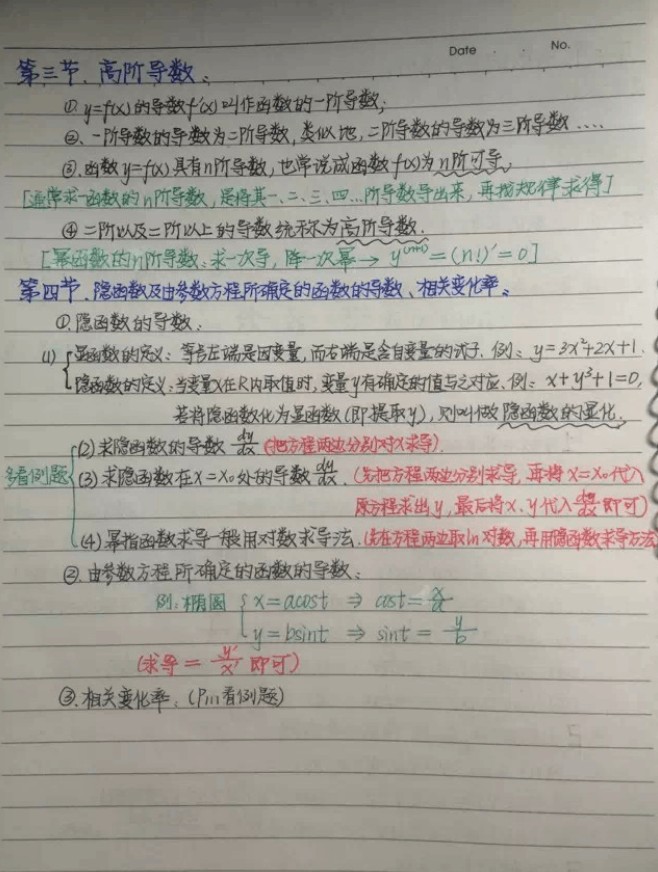 Date . . No.
第三节、高阶导数:
①. y=f(x)的导数f'(x)叫作函数的一阶导数;
②. 一阶导数的导数为二阶导数, 类似地, 二阶导数的导数为三阶导数 ....
③. 函数y=f(x)具有n阶导数, 也常说成函数f(x)为n阶可导。
[通常求一函数的n阶导数, 是将其一、二、三、四...阶导数导出来, 再按规律求得]
④ 二阶以及二阶以上的导数统称为高阶导数.
[幂函数的n阶导数: 求一次导, 降一次幂 → y⁽ⁿ⁺¹⁾ = (n!)' = 0]
第四节. 隐函数及由参数方程所确定的函数的导数、相关变化率。
①. 隐函数的导数:
(1) 显函数的定义: 等号左端是因变量, 而右端是含自变量的式子. 例: y=3x²+2x+1.
隐函数的定义: 当变量x在R内取值时, 变量y有确定的值与之对应. 例: x+y³+1=0,
若将隐函数化为显函数(即提取y), 则叫做隐函数的显化.
(2) 求隐函数的导数 dy/dx (把方程两边分别对x求导).
多看例题 (3) 求隐函数在x=x₀处的导数 dy/dx. (先把方程两边分别求导, 再将x=x₀代入
原方程求出y, 最后将x、y代入 dy/dx 即可)
(4) 幂指函数求导一般用对数求导法. (先在方程两边取ln对数, 再用隐函数求导方法
②. 由参数方程所确定的函数的导数:
例: 椭圆 { x=acost ⇒ cost= x/a
y=bsint ⇒ sint = y/b
(求导 = y'/x' 即可)
③. 相关变化率: (P111看例题)